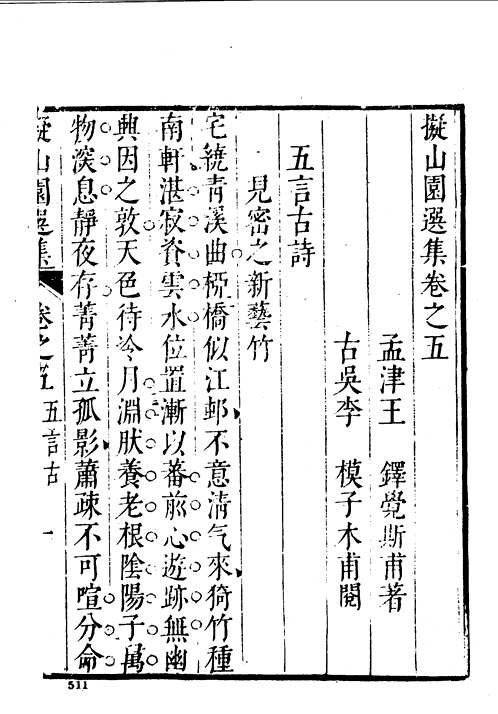 擬山園選集卷之五
孟津王　鐸覺斯甫著
古吳李　模子木甫閱
五言古詩
見密之新藝竹
宅繞青溪曲椏橋似江邨不意清气來猗竹種
南軒湛寂資雲水位置漸以蕃前心遊跡無幽
興因之敦天色待冷月淵肰養老根陰陽子萬
物深息靜夜存菁菁立孤影蕭疎不可喧分命
擬山園選集　卷之五　五言古　一
511